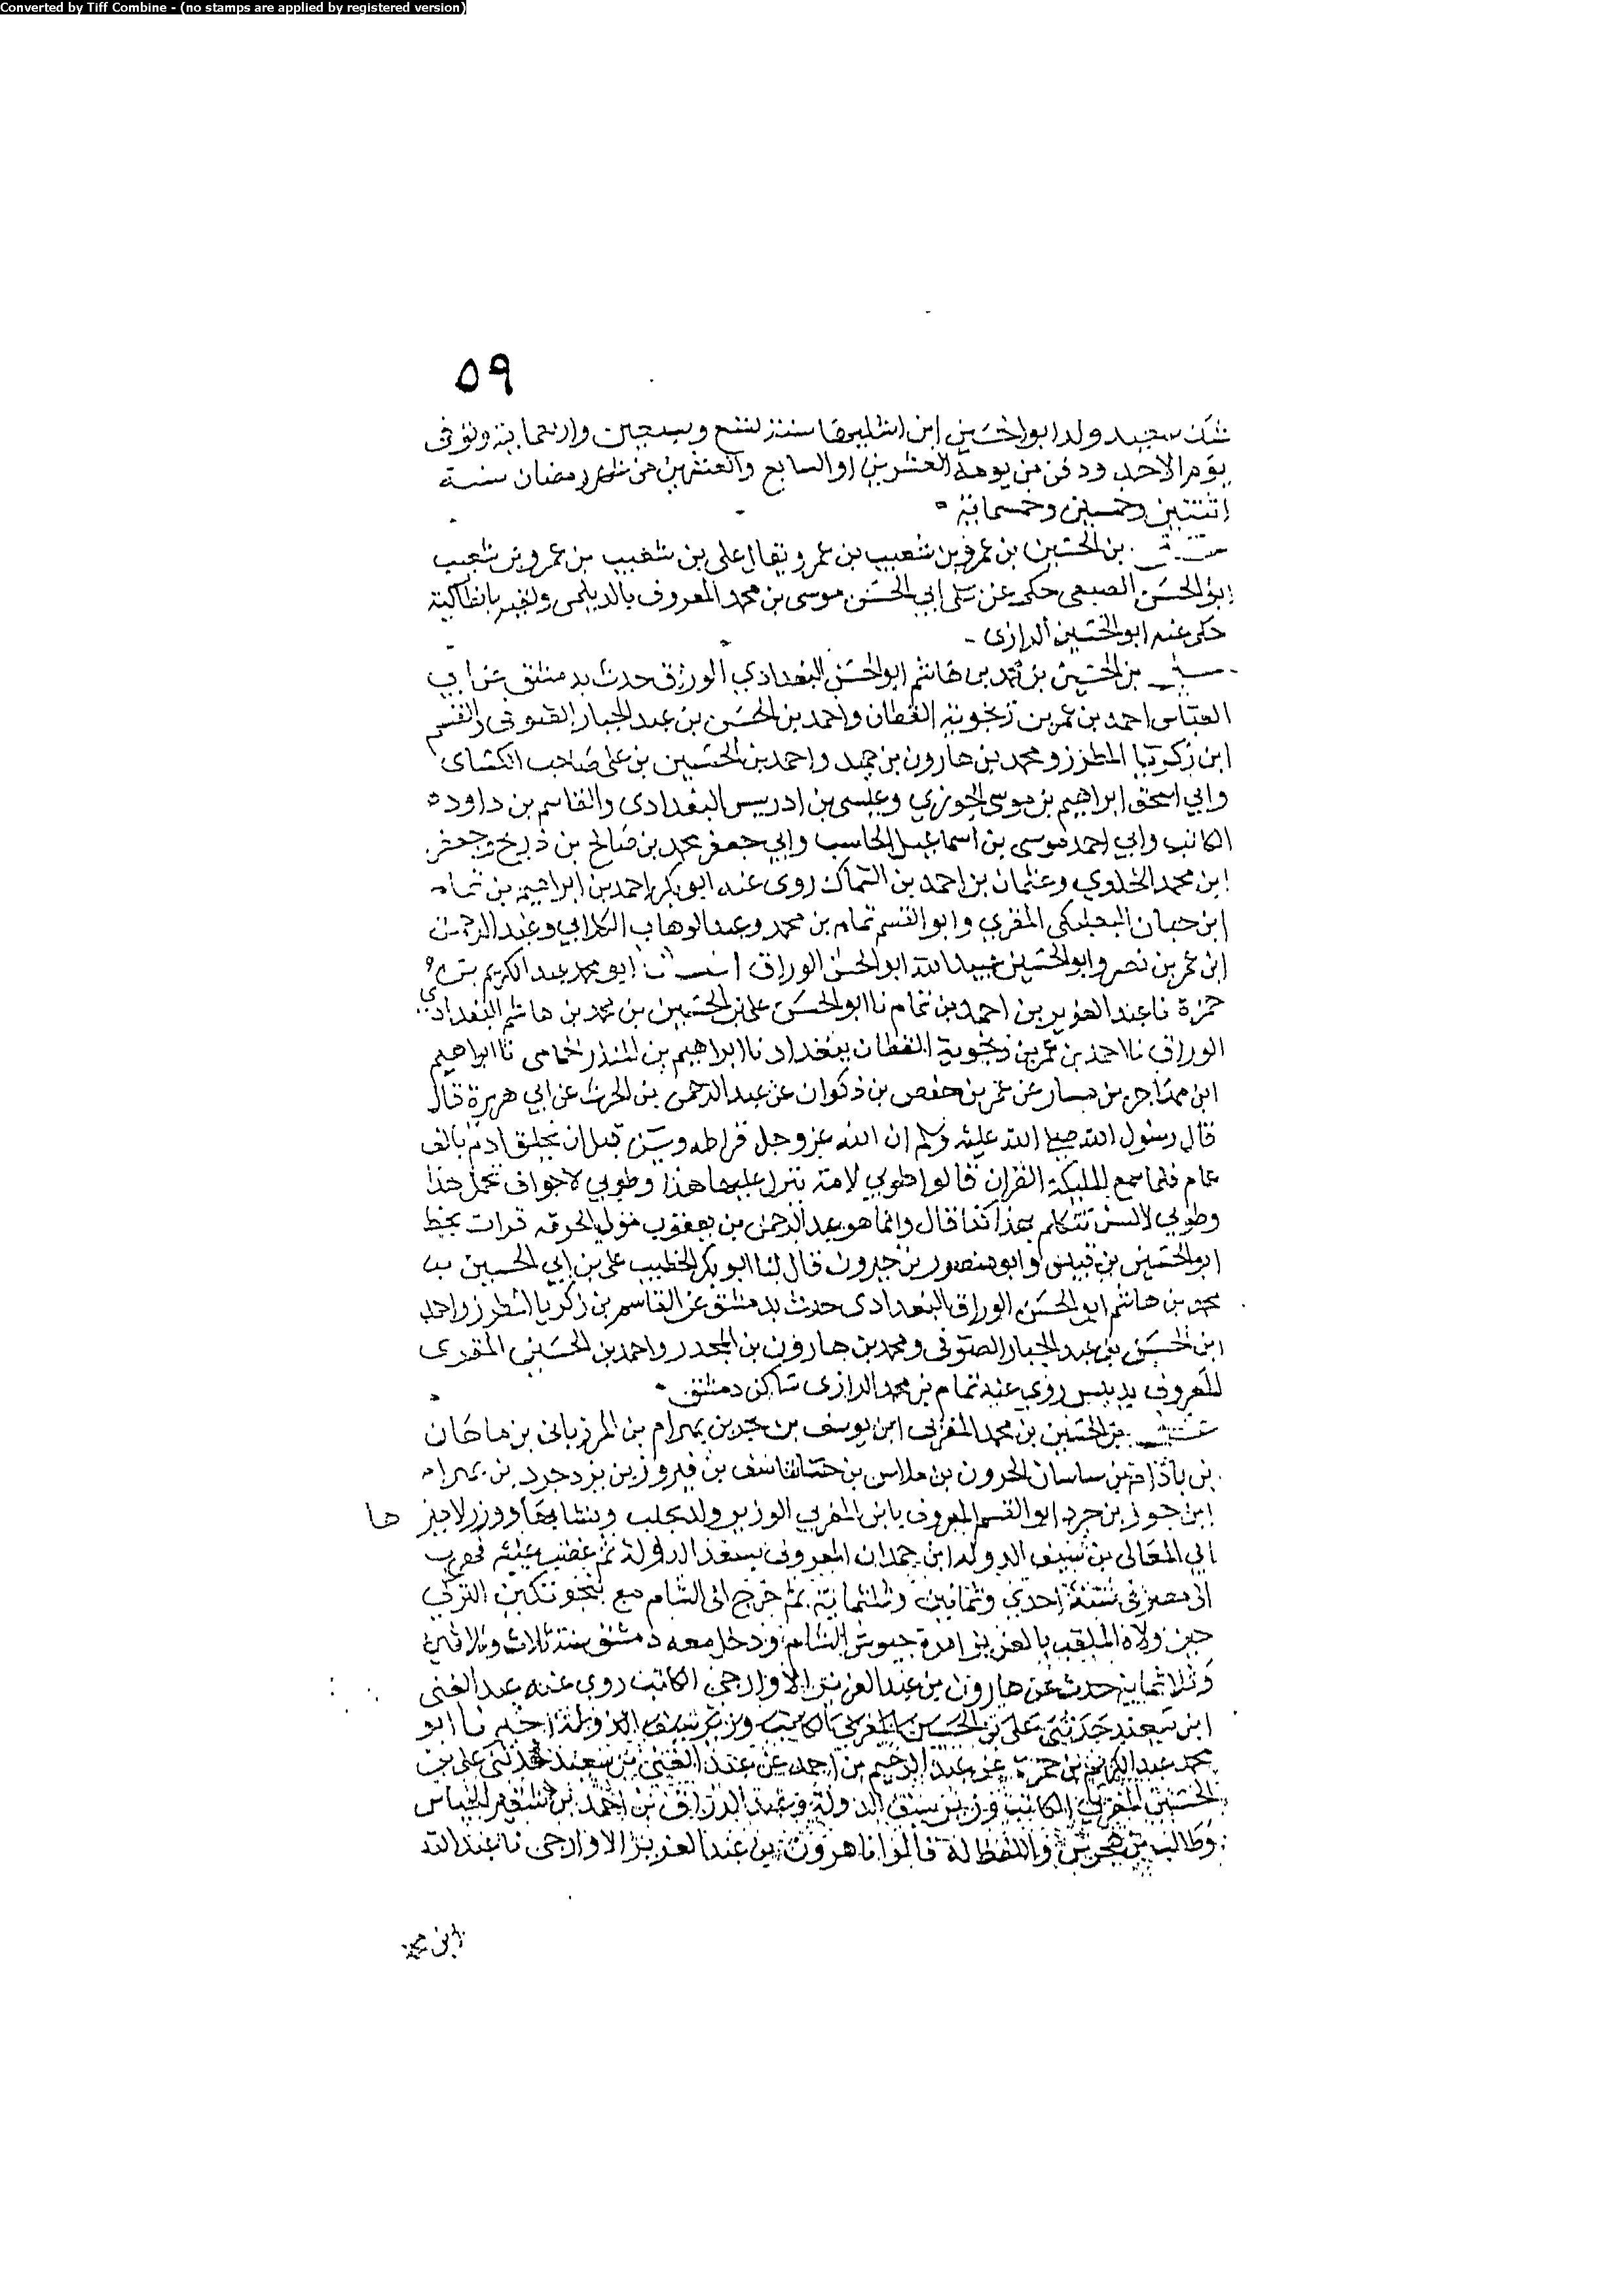 Converted by Tiff Combine - (no stamps are applied by registered version)
٥٩
سعيد ولد ابو الحسين ابن سنة تسع وسبعين واربعماية وتوفى
يوم الاحد ودفن من يومه العشرين او السابع والعشرين من رمضان سنة
اثنتين وخمسين وخمسماية
بن الحسين بن عمرو بن شعيب بن عمر ويقال على بن شعيب بن عمرو بن شعيب
ابو الحسن حكى عن ابي الحسن موسى بن محمد المعروف بالديلمى ولقيه بانطاكية
حكى عنه ابو الحسين الرازى
بن الحسين بن محمد بن هاشم ابو الحسن البغدادي الوراق حدث بدمشق عن ابي
العباس احمد بن عمر بن زنجوية القطان واحمد بن الحسن بن عبد الجبار الصوفى والقسم
ابن زكريا المطرز ومحمد بن هارون بن حميد واحمد بن الحسين بن على صاحب
وابي اسحق ابراهيم بن موسى الجوزي وعيسى بن ادريس البغدادى والقاسم بن داود
الكاتب وابي احمد موسى بن اسماعيل الحاسب وابي جعفر محمد بن صالح بن ذريح وجعفر
ابن محمد الخلدي وعثمان بن احمد بن السماك روى عنه ابو بكر احمد بن ابراهيم بن تمام
ابن حبان البعلبكى المقري وابو القسم تمام بن محمد وعبد الوهاب الكلابي وعبد الرحمن
ابن عمر بن نصر وابو الحسين عبيد الله ابو الحسن الوراق ابو محمد عبد الكريم بن
حمزة نا عبد العزيز بن احمد بن تمام نا ابو الحسن على بن الحسين بن محمد بن هاشم البغدادي
الوراق نا احمد بن عمر بن زنجوية القطان ببغداد نا ابراهيم بن المنذر الحزامى نا ابراهيم
ابن مهاجر بن مسمار عن عمر بن حفص بن ذكوان عن عبد الرحمن بن الحرث عن ابي هريرة قال
قال رسول الله صلى الله عليه وسلم ان الله عز وجل قرا طه ويس قبل ان يخلق ادم بالف
عام فلما سمع الملئكة القران قالوا طوبي لامة ينزل عليها هذا وطوبي لاجواف تحمل هذا
وطوبي لالسن تتكلم بهذا كذا قال وانما هو عبد الرحمن بن يعقوب مولى الحرقه قرات بخط
ابو الحسين بن قبيس وابو منصور بن خيرون قال لنا ابو بكر الخطيب على بن ابي الحسين بن
محمد بن هاشم ابو الحسن الوراق البغدادى حدث بدمشق عن القاسم بن زكريا المطرز واحمد
ابن الحسن بن عبد الجبار الصوفى ومحمد بن هارون بن المجدر واحمد بن الحسين المقرى
المعروف بدبيس روى عنه تمام بن محمد الرازى ساكن دمشق
بن الحسين بن محمد المغربى ابن يوسف بن بحر بن بهرام بن المرزبانى بن ماهان
بن باذام بن ساسان الحرون بن بلاس بن بن فيروز بن يزدجرد بن بهرام
ابن جوز بن جرد ابو القسم المعروف بابن المغربي الوزير ولد بحلب ونشا بها ووزر لامير ها
ابي المعالى بن سيف الدولة ابن حمدان المعروف بسعد الدولة ثم غضب عليه فهرب
الى مصر فى سنة احدي وثمانين وثلثماية ثم خرج الى الشام مع بنجوتكين التركى
حين ولاه الملقب بالعزيز امرة جيوش الشام ودخل معه دمشق سنة ثلاث وثلاثين
وثلاثماية حدث عن هارون بن عبد العزيز الاوارجى الكاتب روى عنه عبد الغنى
ابن سعيد حدثنى على بن الحسين المغربى الكاتب وزير سيف الدولة اخبرنا ابو
محمد عبد الكريم بن حمزة عن عبد الرحيم بن احمد عن عبد الغنى بن سعيد حدثنى على بن
الحسين المغربي الكاتب وزير سيف الدولة وعبد الرزاق بن احمد بن
وطالب بن واللفظ له قالوا نا هرون بن عبد العزيز الاوارجى نا عبد الله
ابن محمد